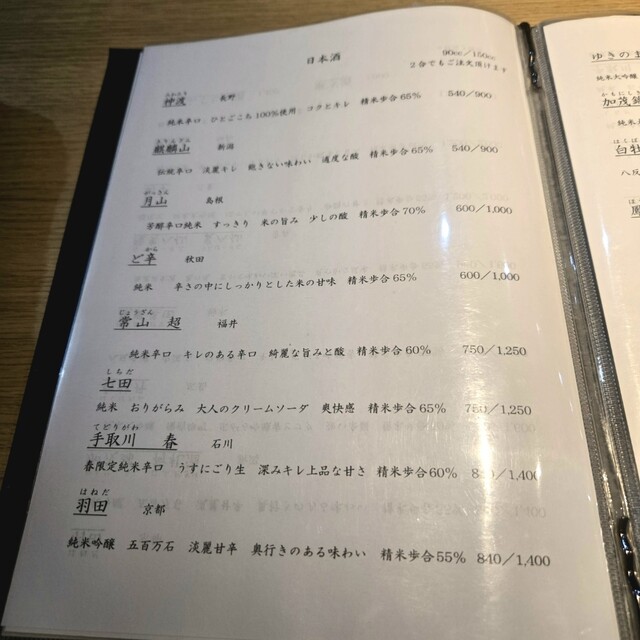 日本酒
90cc／150cc
2合でもご注文頂けます
長野
純米辛口 ひとごこち100%使用 コクとキレ 精米歩合65% 540/900
きりんざん
麒麟山 新潟
伝統辛口 淡麗キレ 飽きない味わい 適度な酸 精米歩合65% 540/900
がっさん
月山 島根
芳醇辛口純米 すっきり 米の旨み 少しの酸 精米歩合70% 600/1,000
から
ど辛 秋田
純米 辛さの中にしっかりとした米の甘味 精米歩合65% 600/1,000
じょうざん
常山 超 福井
純米辛口 キレのある辛口 綺麗な旨みと酸 精米歩合60% 750/1,250
しちだ
七田
純米 おりがらみ 大人のクリームソーダ 爽快感 精米歩合65% 750/1,250
てどりがわ
手取川 春 石川
春限定純米辛口 うすにごり生 深みキレ上品な甘さ 精米歩合60% 840/1,400
はねだ
羽田 京都
純米吟醸 五百万石 淡麗甘辛 奥行きのある味わい 精米歩合55% 840/1,400
ゆきの
純米大吟醸
かもにしき
加茂錦
純米
白牡
八反